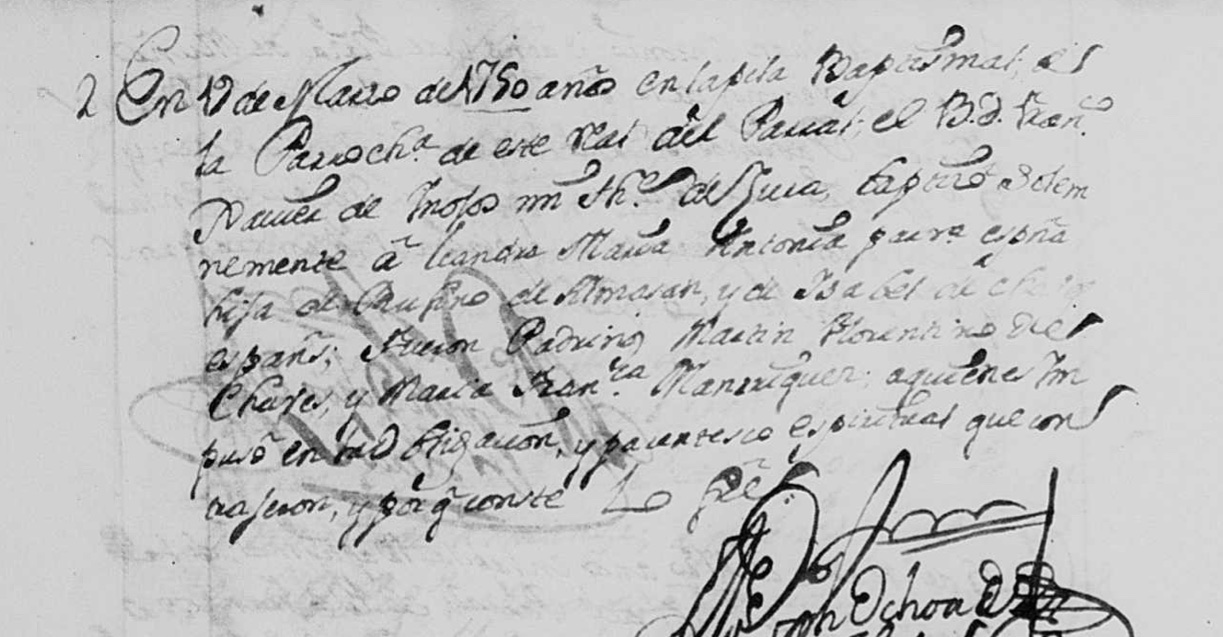 2 En 12 de Marzo de 1750 años en la pila Baptismal, de
la Parroch.ª de este Real del Parral, el B.D. Fran.co
Xavier de mi Th.e de Cura, baptisó solem
nemente â leandra Maria Antonia parv.ª españa
hija de Rufino de Almasan, y de Isabel de Chaves
españs; fueron Padrinos Martin Florentino de
Chaves, y Maria Fran.ca Manrriquez; aquienes Im
puso en la Obligacion, y parentesco espiritual que con
trajeron, y por q conste Lo firé
Ochoa